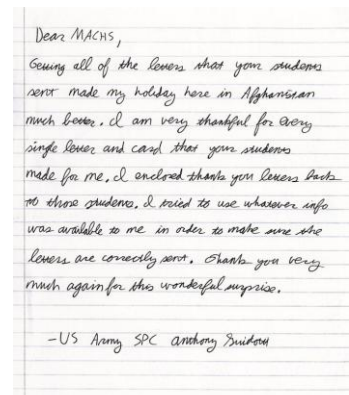 Dear MACHS,
Getting all of the letters that your students
sent made my holiday here in Afghanistan
much better. I am very thankful for every
single letter and card that your students
made for me. I enclosed thank you letters back
to those students. I tried to use whatever info
was available to me in order to make sure the
letters are correctly sent. Thank you very
much again for this wonderful surprise.
-US Army SPC Anthony